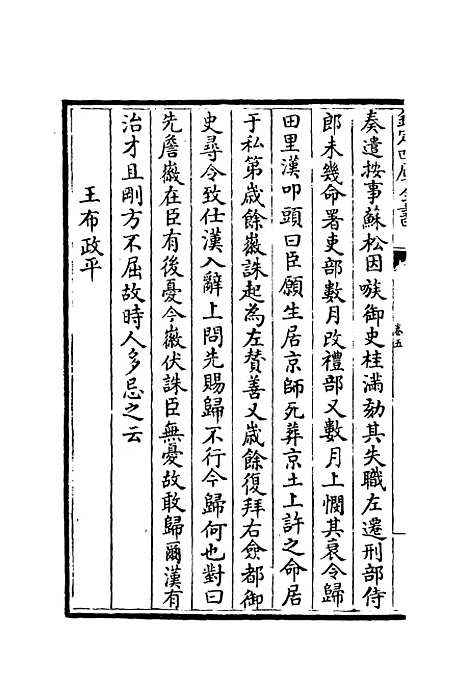 欽定四庫全書
卷五
奏遣按事蘇松因嗾御史桂滿劾其失職左遷刑部侍
郎未幾命署吏部數月改禮部又數月上憫其衰令歸
田里漢叩頭曰臣願生居京師死葬京土上許之命居
于私第歳餘徽誅起為左賛善又歳餘復拜右僉都御
史尋令致仕漢入辭上問先賜歸不行今歸何也對曰
先詹徽在臣有後憂今徽伏誅臣無憂故敢歸爾漢有
治才且剛方不屈故時人多忌之云
王布政平